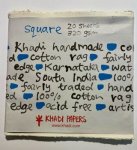 Square 20 sheets
320 gsm
Khadi handmade co
cotton rag fairly
edge Karnataka wat
made South India 100%
fairly traded hand
ed 100% cotton rag
edge acid free artis
KHADI PAPERS
www.khadi.com